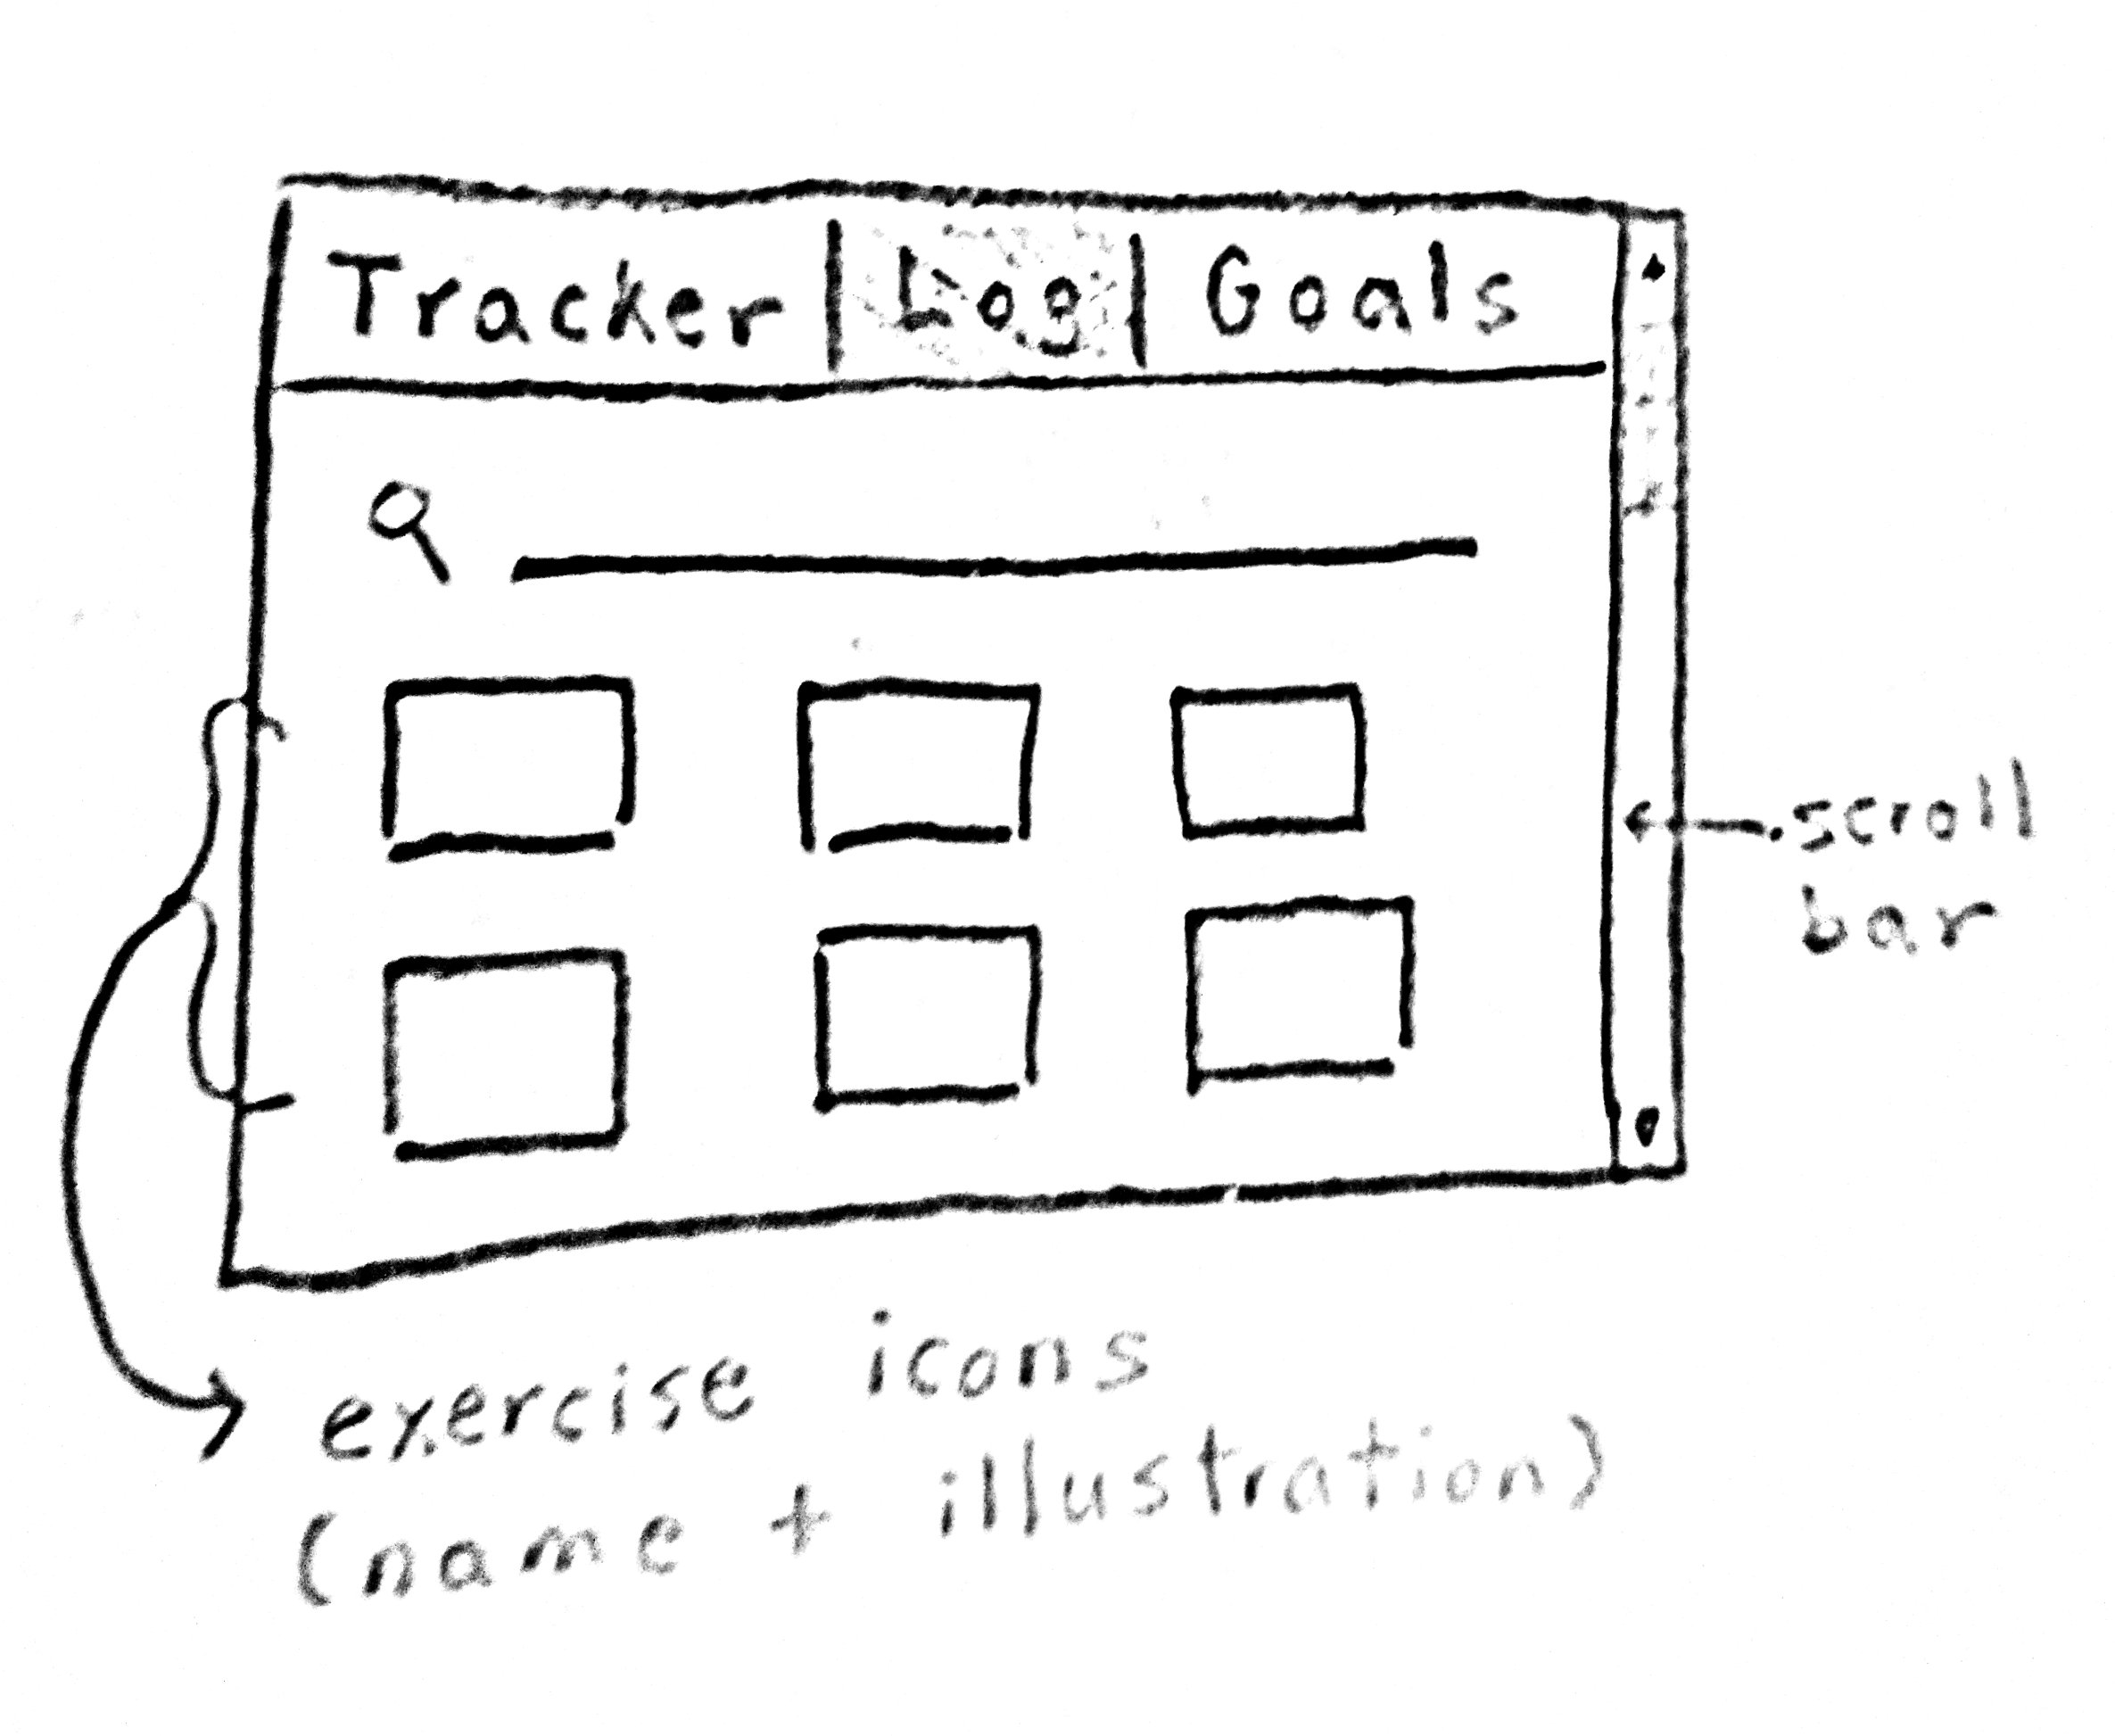 Tracker | Log | Goals
scroll
bar
exercise icons
(name + illustration)